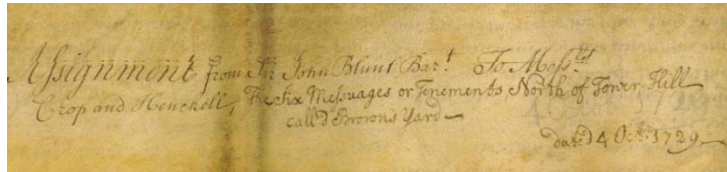 Assignment from Sir John Blunt Bar.t To Mess.rs
Crop and Henckell, The six Messuages or Tenements North of Tower Hill
call'd Brown's Yard
dated 4 Oct. 1729